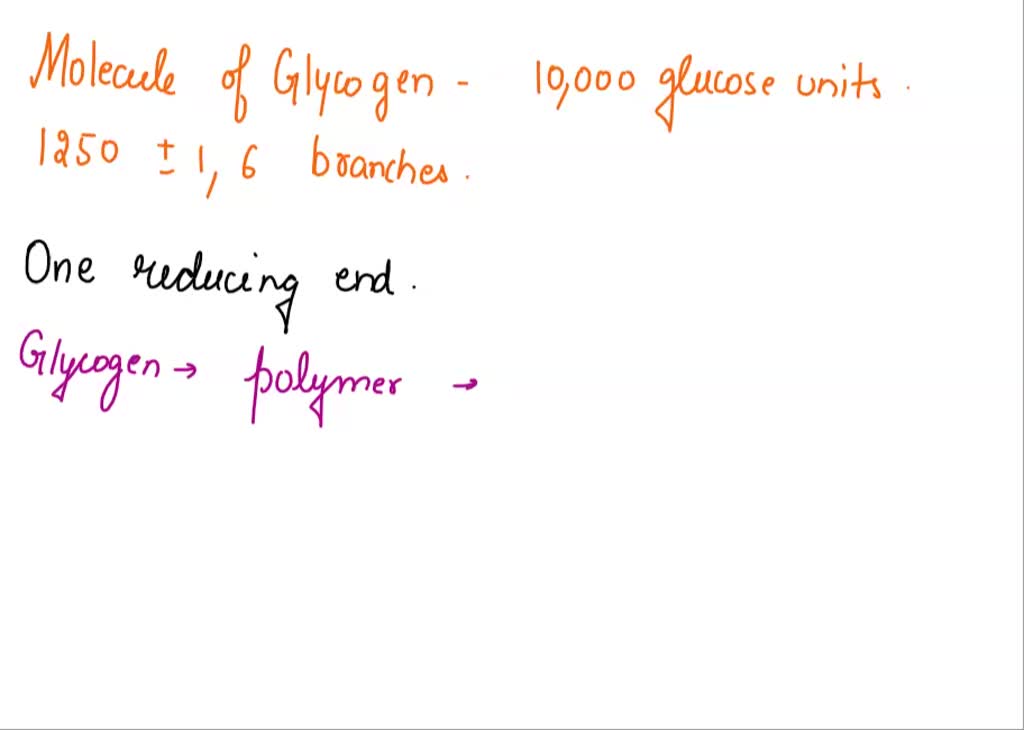 Molecule of Glycogen - 10,000 glucose units.
1250 ± 1, 6 branches.
One reducing end.
Glycogen → polymer →